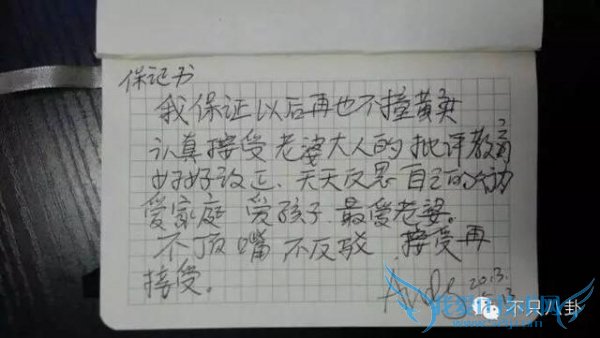 保记书
我保证以后再也不撞黄奕
认真接受老婆大人的批评教育
好好改正、天天反思自己的行为
爱家庭 爱孩子 最爱老婆。
不顶嘴 不反驳 接受再
接受。
2013.
不只八卦